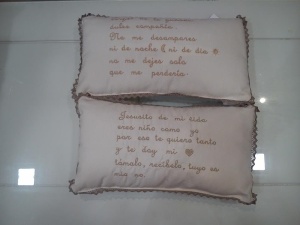 dulce compañía
No me desampares
ni de noche ni de día
no me dejes sola
que me perdería
Jesusito de mi vida
eres niño como yo
por eso te quiero tanto
y te doy mi
tómalo, recíbelo, tuyo es
mío no